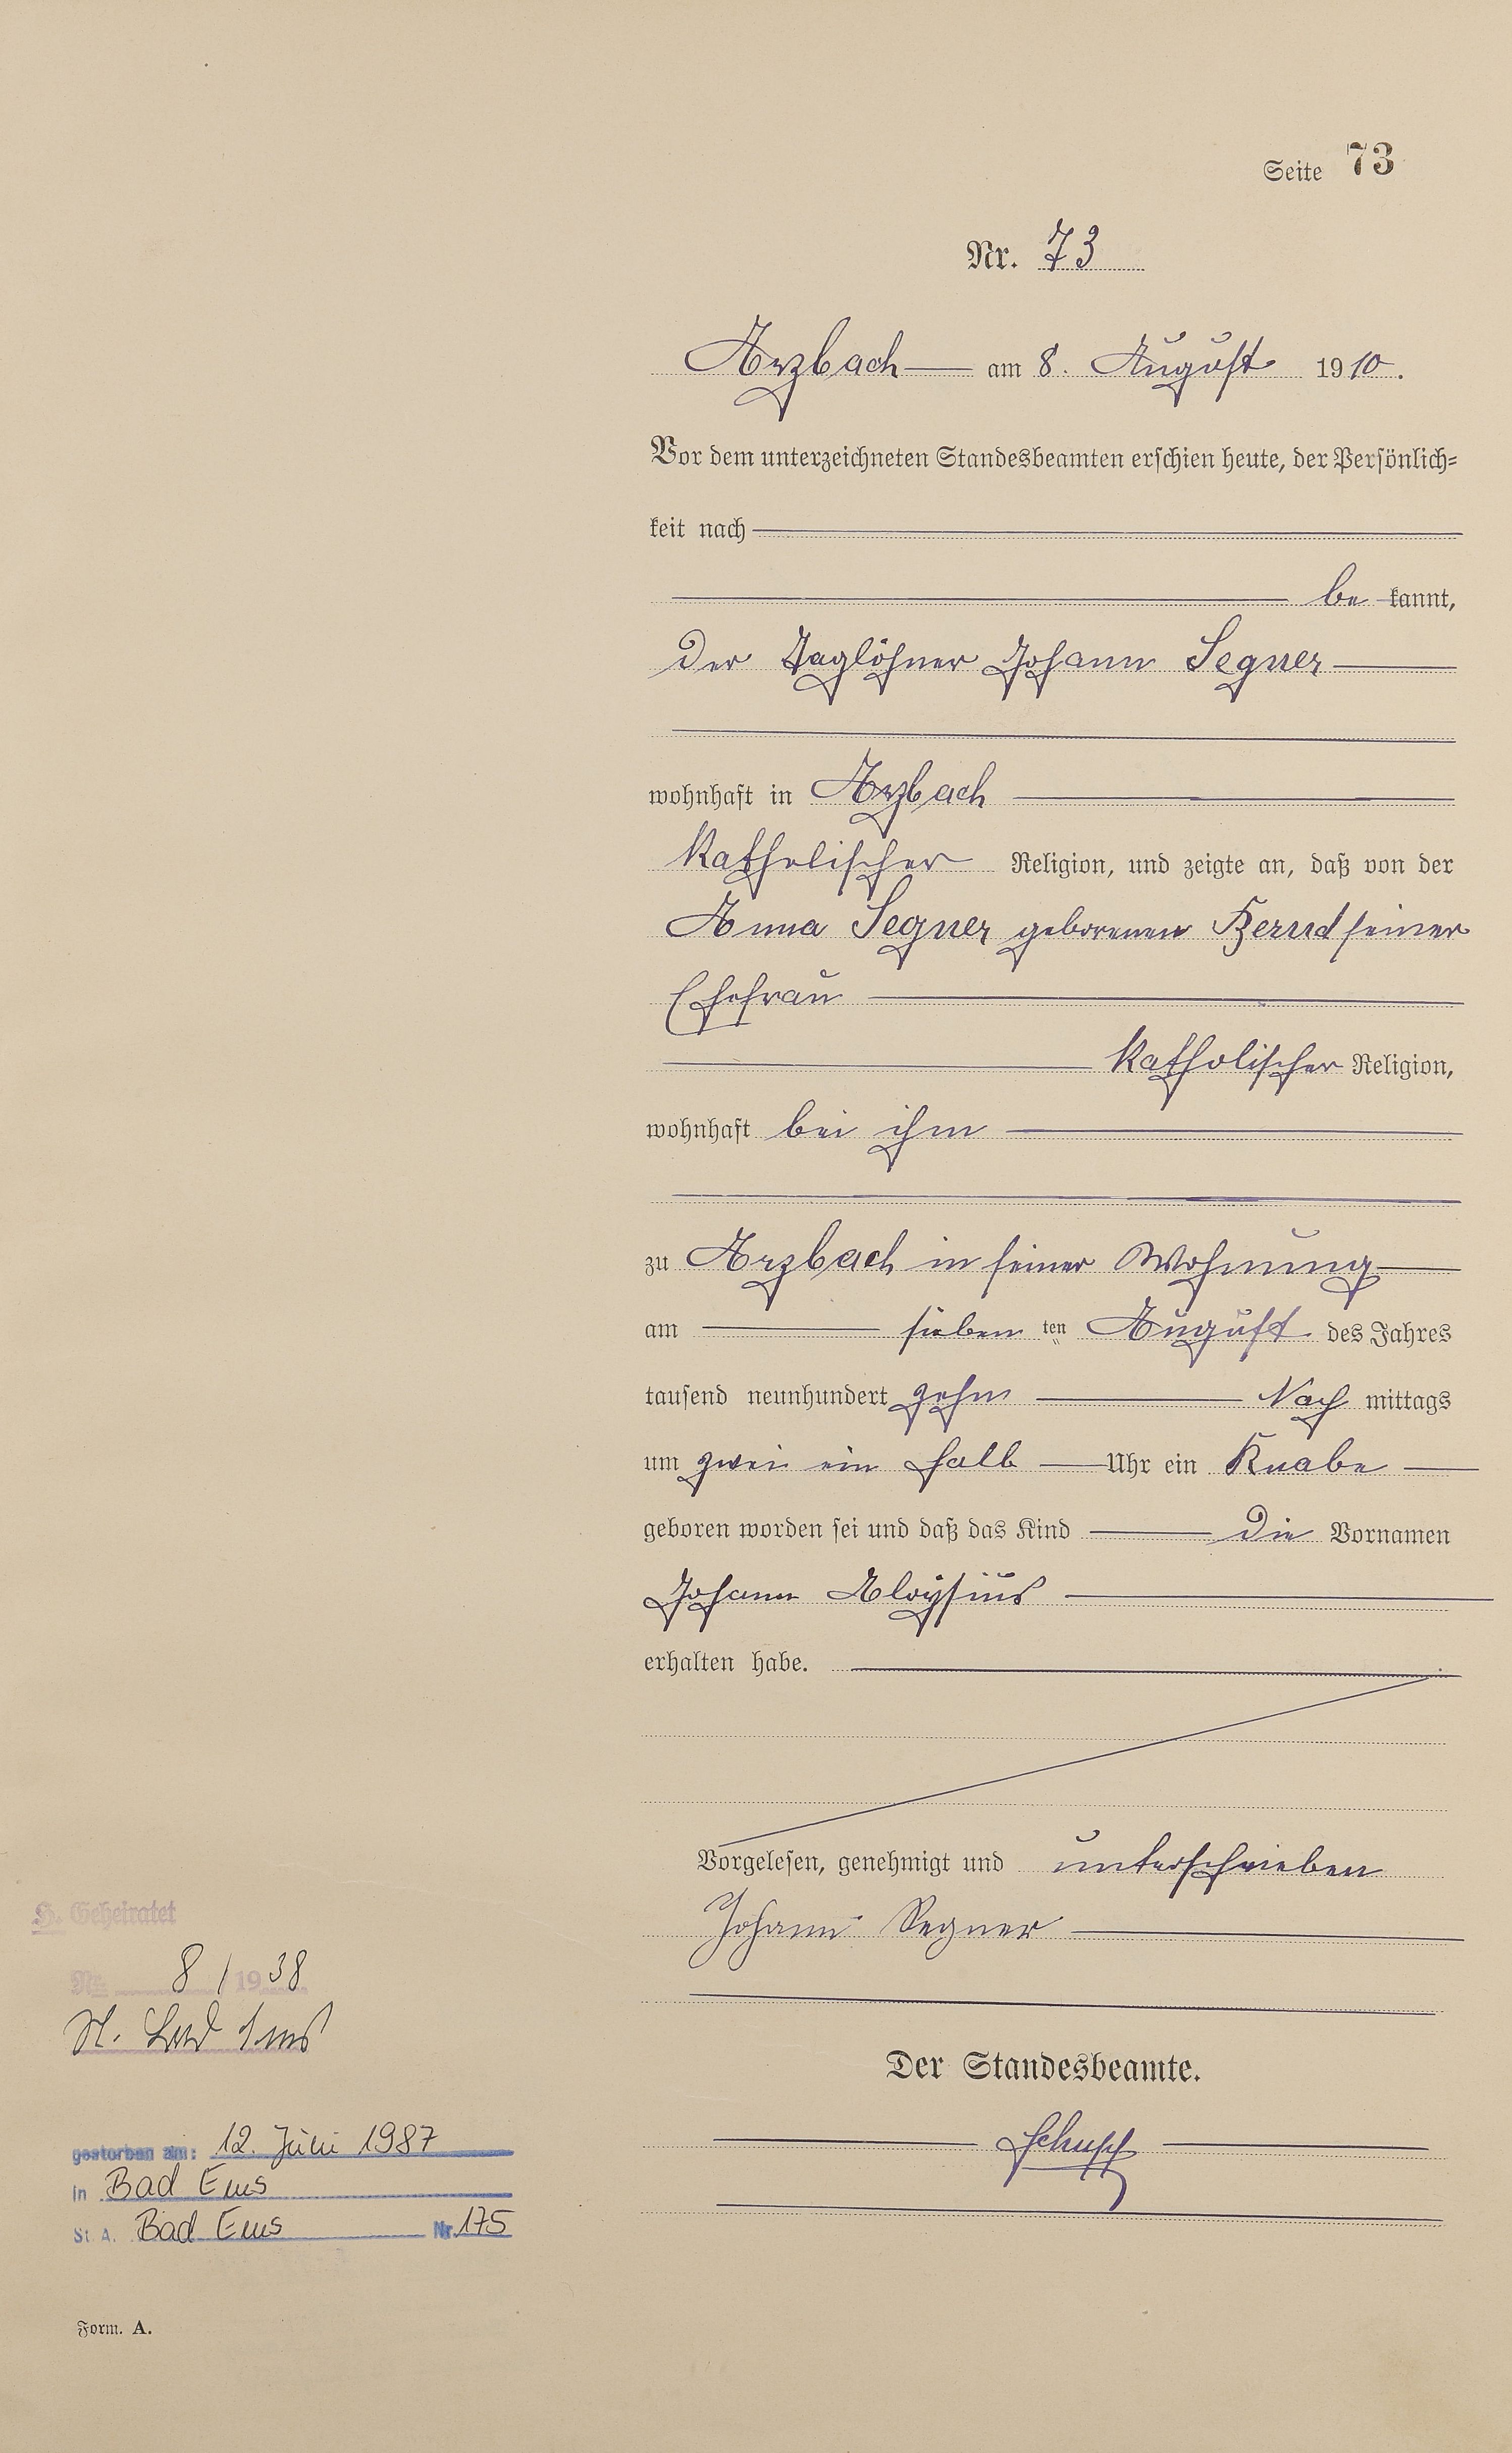 Seite 73
Nr. 73
Arzbach am 8. August 1910.
Vor dem unterzeichneten Standesbeamten erschien heute, der Persönlich=
keit nach
be kannt,
der Taglöhner Johann Segner
wohnhaft in Arzbach
katholischer Religion, und zeigte an, daß von der
Anna Segner geborenen Bernd seiner
Ehefrau
katholischer Religion,
wohnhaft bei ihm
zu Arzbach in seiner Wohnung
am sieben ten August des Jahres
tausend neunhundert zehn Nach mittags
um zwei ein halb Uhr ein Knabe
geboren worden sei und daß das Kind die Vornamen
Johann Aloysius
erhalten habe.
Vorgelesen, genehmigt und unterschrieben
Johann Segner
Der Standesbeamte.
Schupp
H. Geheiratet
Nr. 8 / 1938
St. Bad Ems
gestorben am: 12. Juni 1987
in Bad Ems
St. A. Bad Ems Nr. 175
Form. A.